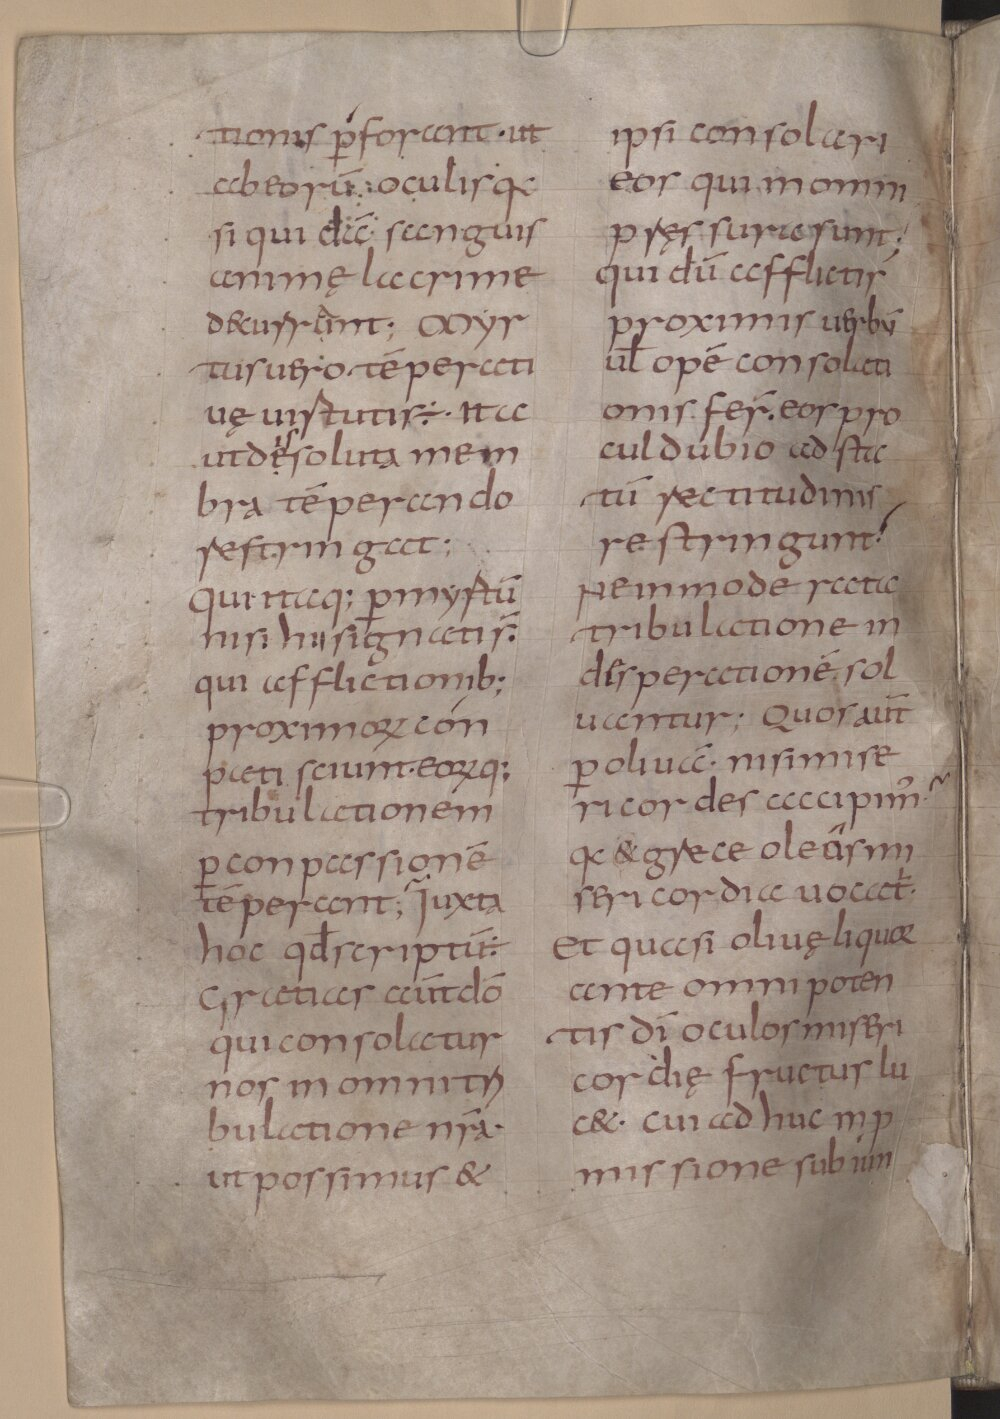 tionis p̄forant· ut
ab eorū· oculis q̨
si qui dā sanguis
animę lacrime
decusrant; Myr
tus uero tēperati
uę uirtutis÷· Ita
ut dissoluta mem
bra tēperando
restringat;
Qui itaq; p̄ myrtū
nisi hii signatis̄
qui afflictionib;
proximoꝝ con
pati sciunt· eoꝝq;
tribulationem
ꝑ conpassionē
tēperant; Juxta
hoc qđ scriptū÷
Gratias aūt dō
qui consolatur
nos in omni tri
bulatione nr̄a·
ut possimus &
ipsi consolari
eos qui in omni
pręssura sunt;
qui dū afflictis
proximis uerbū
ul̄ opē consolati
onis fer̄· eos pro
cul dubio ad sta
tū rectitudinis
restringunt·
Ne inmoderata
tribulatione in
disperationē sol
uantur; Quos aūt
ꝑ oliuā· nisi mise
ricordes accipim̉·
q̨ & grece oleos mi
sericordia uocat̄·
Et quasi oliuę liquor
ante omnipoten
tis dī oculos miseri
cordię fructus lu
c&· cui adhuc in p
missione subiun